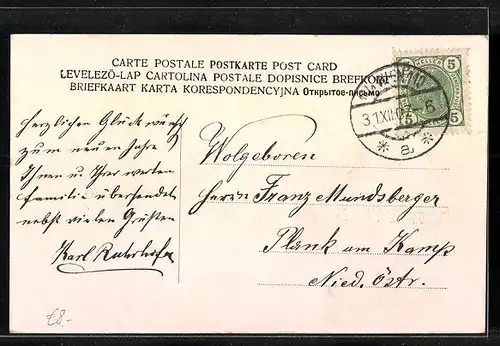 CARTE POSTALE POSTKARTE POST CARD
LEVELEZŐ-LAP CARTOLINA POSTALE DOPISNICE BREFKORT
BRIEFKAART KARTA KORESPONDENCYJNA Открытое-письмо
5 5
5 5
31 XII 07-6
* a *
Herzlichen Glückwunsch
zum neuen Jahre
Ihnen u. Ihrer werten
Familie übersendet
nebst vielen Grüßen
Karl
Wolgeboren
Herrn Franz Mundsberger
Plank am Kamp
Nied. Östr.
€8.-